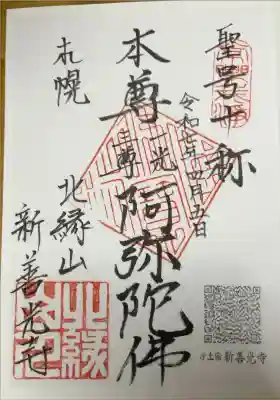 聖号十称
令和七年四月五日
本尊 阿弥陀佛
札幌
北縁山
新善光寺
北縁
浄土宗 新善光寺